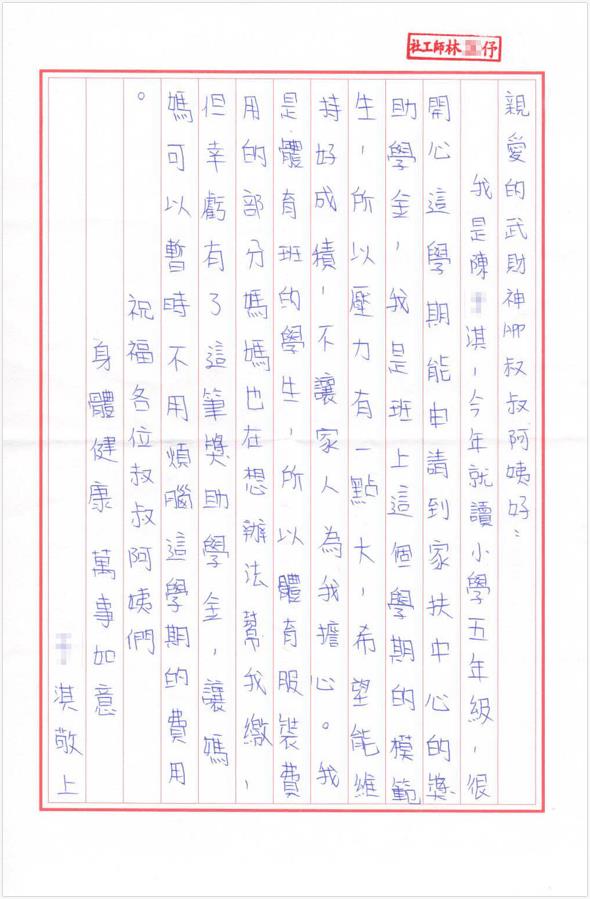 社工師林伃
親愛的武財神叔叔阿姨好：
我是陳淇，今年就讀小學五年級，很
開心這學期能申請到家扶中心的獎
助學金，我是班上這個學期的模範
生，所以壓力有一點大，希望能維
持好成績，不讓家人為我擔心。我
是體育班的學生，所以體育服裝費
用的部分媽媽也在想辦法幫我繳，
但幸虧有了這筆獎助學金，讓媽
媽可以暫時不用煩腦這學期的費用
。
祝福各位叔叔阿姨們
身體健康 萬事如意
淇敬上